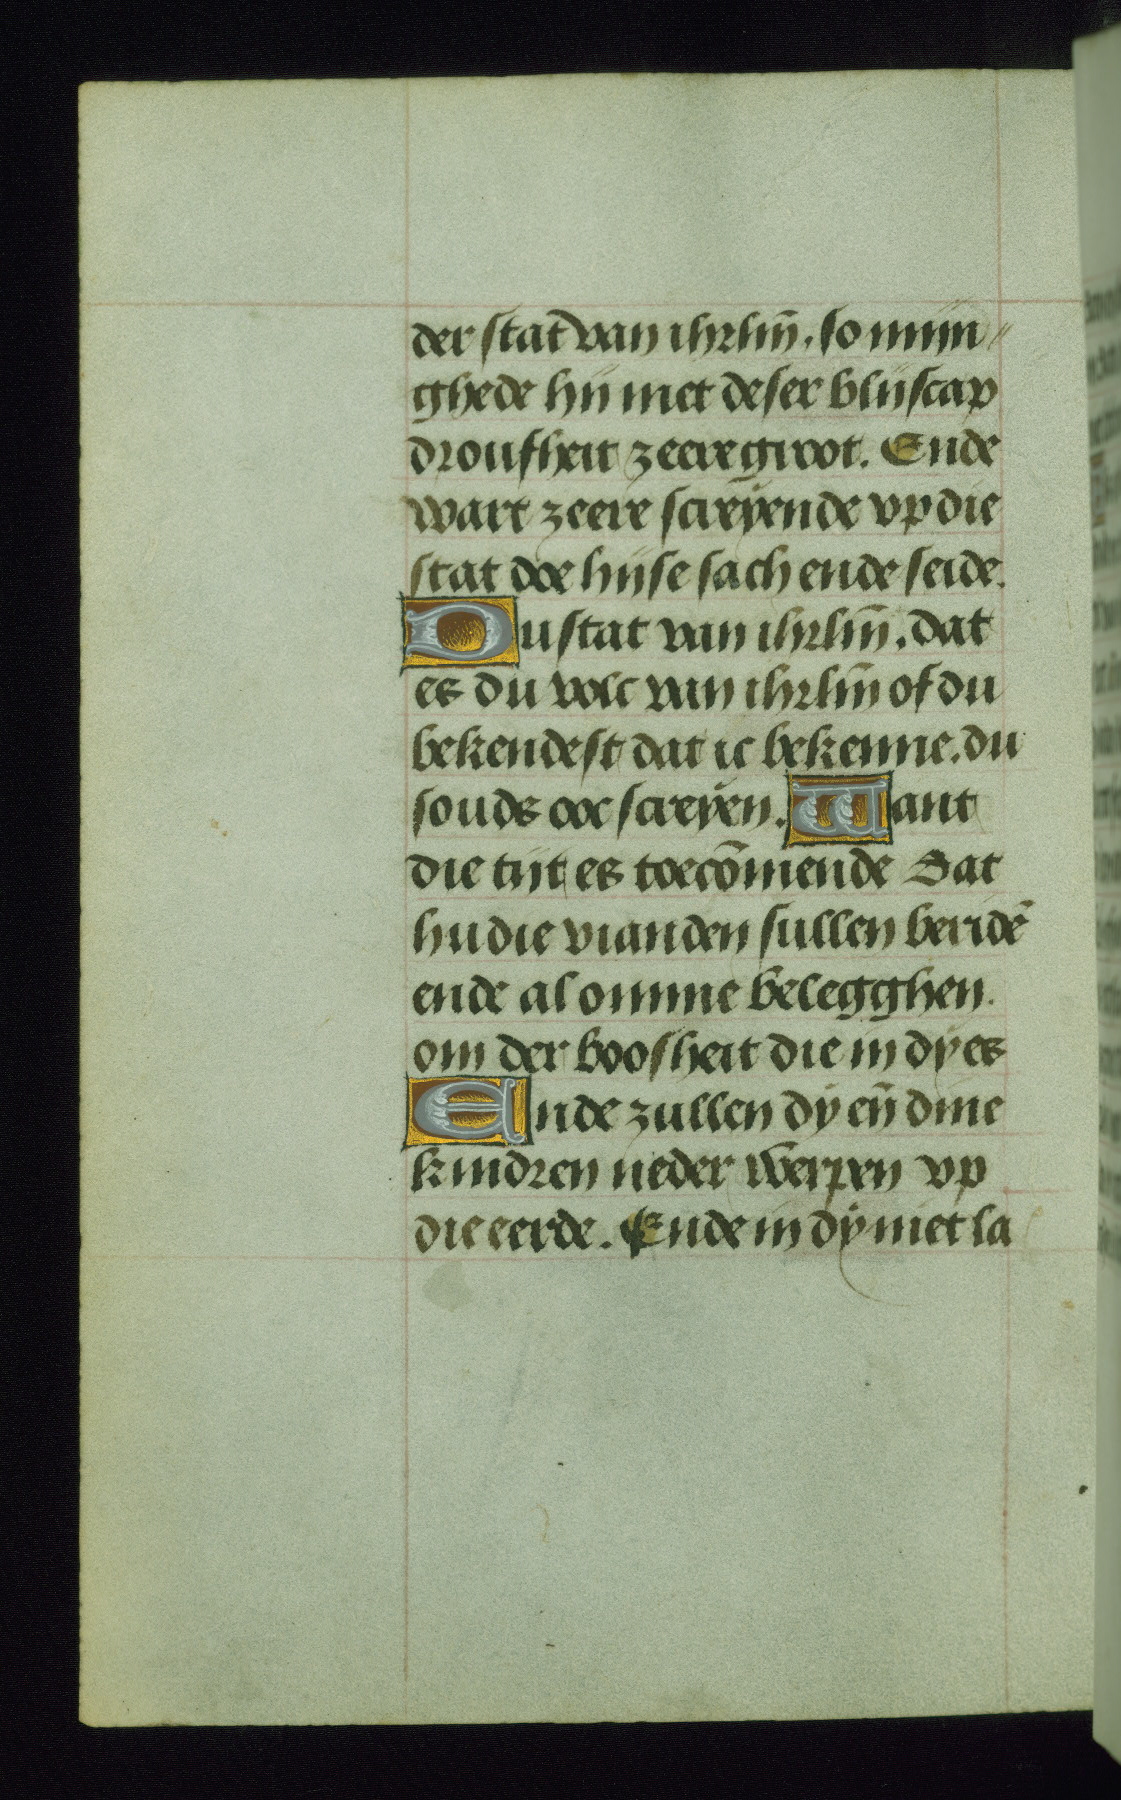 der stat van ihrlm̄. so mijn〃
ghede hij met deser blijscap
droufheit zeere groot. Ende
wart zeere screÿende vp die
stat doe hijse sach ende seide.
Du stat van ihrlm̄. dat
es du volc van ihrlm̄ of du
bekendest dat ic bekenne. du
souds ooc screÿen. Want
die tijt es toecōmende Dat
hu die vianden sullen beridē
ende al omme belegghen.
om der boosheit die in dÿ es
Ende zullen dÿ eñ dine
kindren neder werpen vp
die eerde. Ende in dÿ niet la